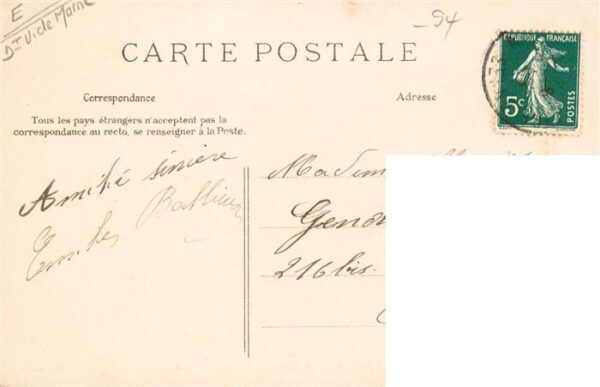 E
Dt V. de Marne
-94
CARTE POSTALE
RÉPUBLIQUE FRANÇAISE
5c
POSTES
Correspondance
Adresse
Tous les pays étrangers n'acceptent pas la
correspondance au recto, se renseigner à la Poste.
Amitié sincère
Madam
216 bis.